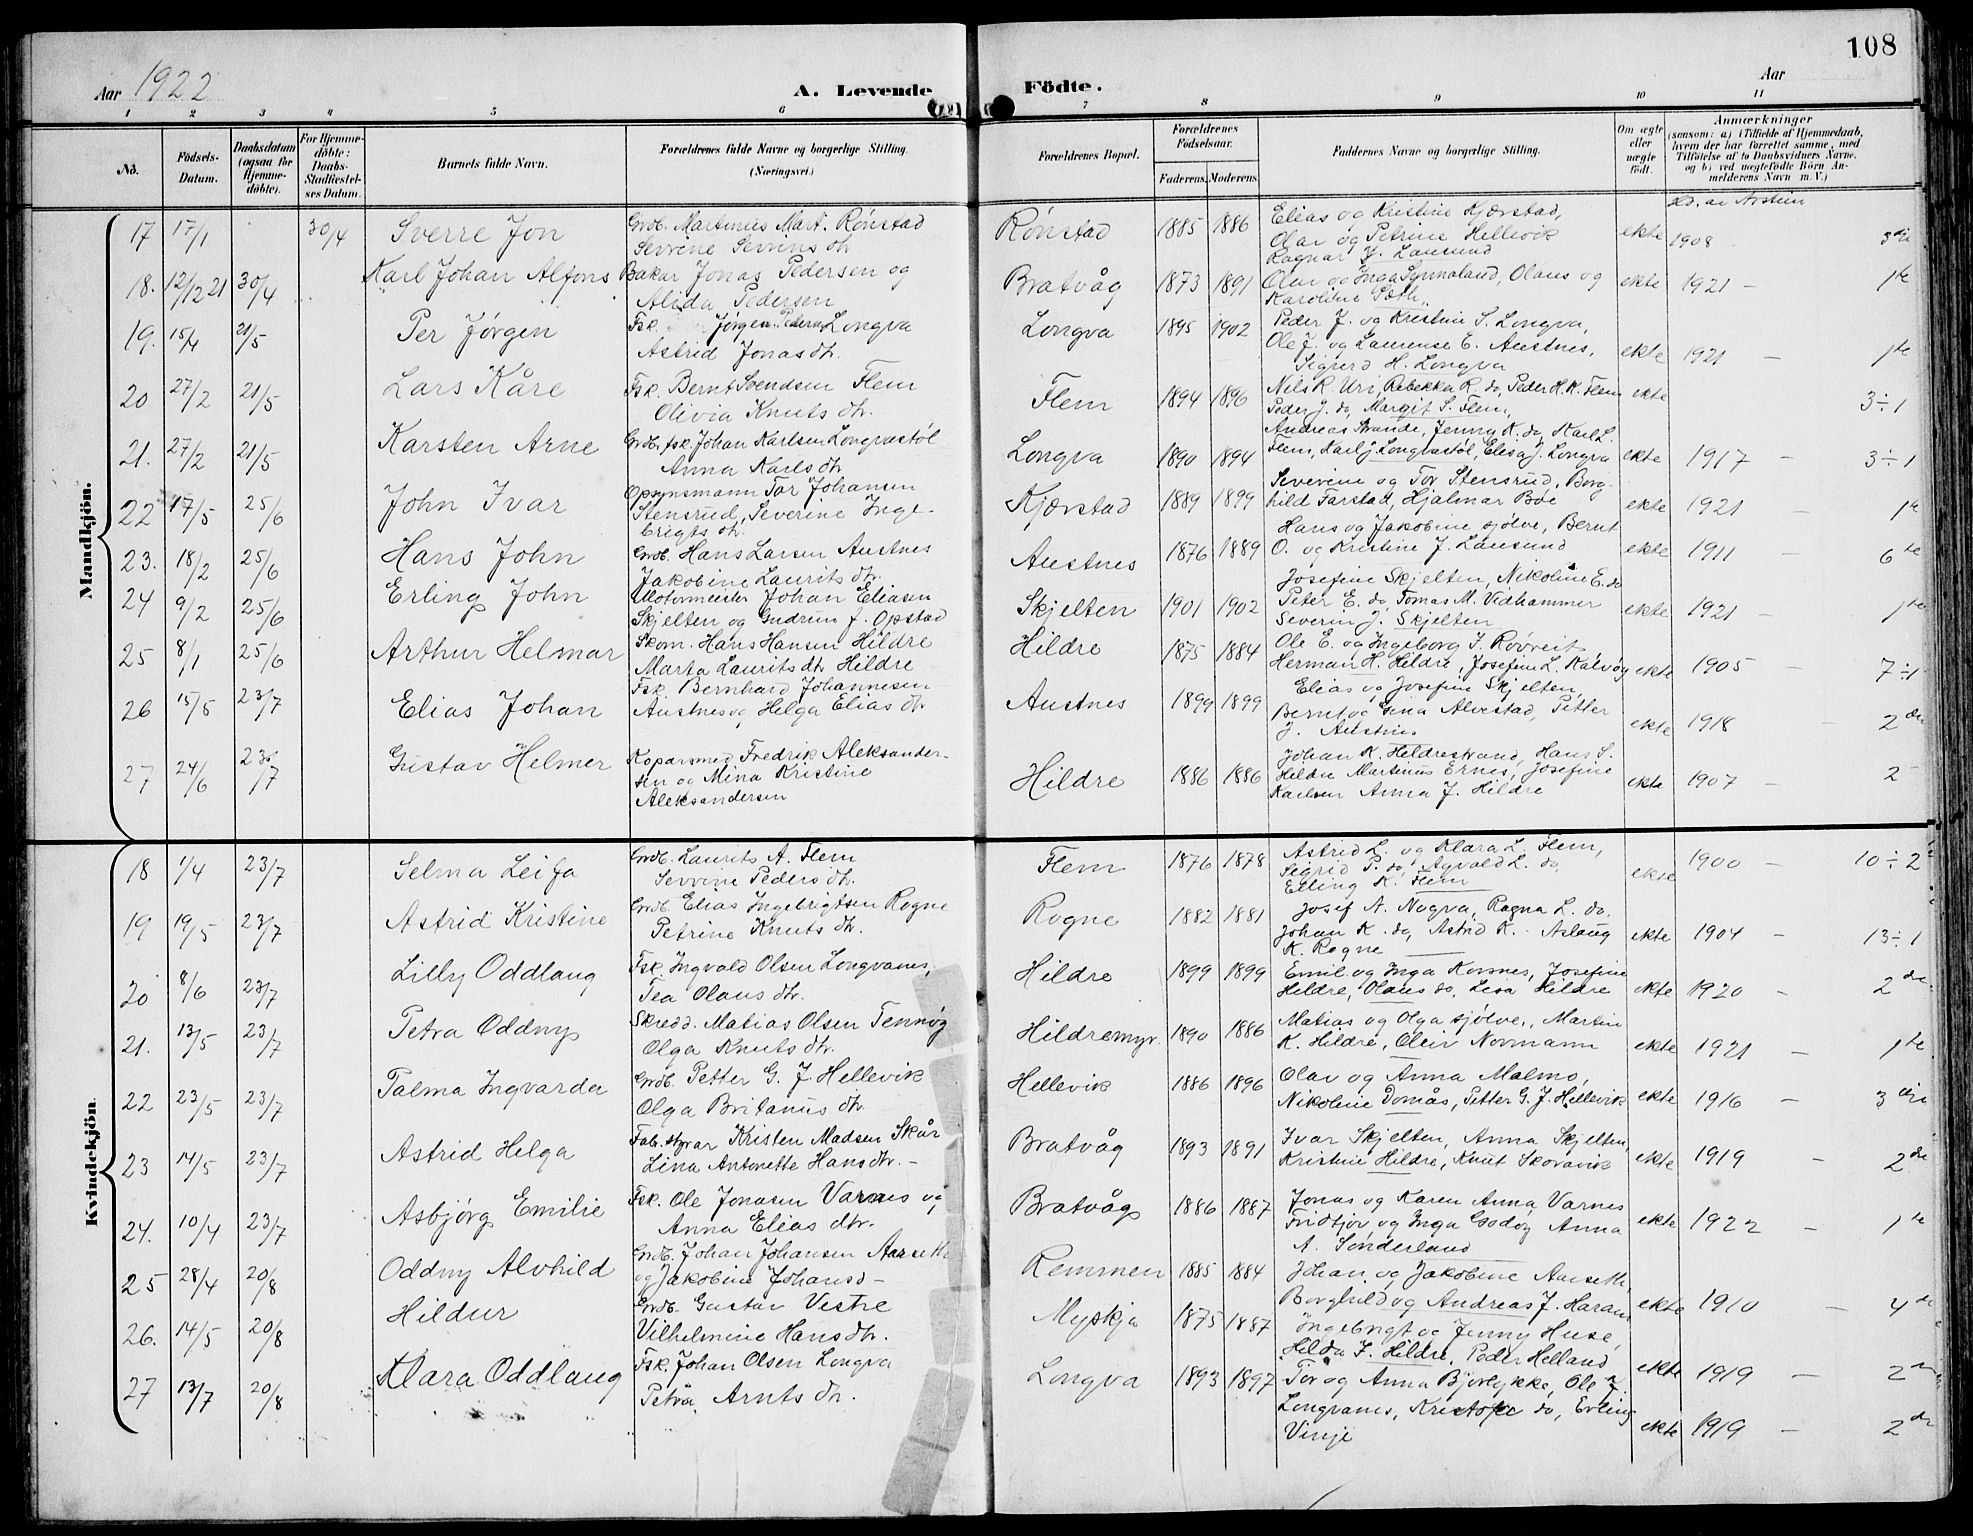 108
Aar 1922 A. Levende Födte. Aar
1 2 3 4 5 6 7 8 9 10 11
No. Födsels-Datum. Daabsdatum (ogsaa for Hjemme-döbte). For Hjemme-döbte: Daabs-Stadfæstel-ses Datum. Barnets fulde Navn. Forældrenes fulde Navne og borgerlige Stilling. (Næringsvei.) Forældrenes Bopæl. Forældrenes Födselsaar. Faderens. Moderens Faddernes Navne og borgerlige Stilling. Om ægte eller uægte födt. Anmærkninger (saasom: a) i Tilfælde af Hjemmedaab, hvem der har forrettet samme, med Tilföielse af to Daabsvidners Navne. og b) ved uægtefödte Börn An-melderens Navn m. V.)
Mandkjön.
17 17/1 30/4 Sverre Jon Grdb. Martinus Mart. Rónstad Rónstad 1885 1886 Elias og Kristine Kjærstad, ekte 1908
Sevrine Sevrins dtr. Olav og Petrine Hellevik
Ragnar J. Lausund
18. 12/12 21 30/4 Karl Johan Alfons Bakar Jonas Pedersen og Bratvåg 1873 1891 Olav og Inga Synnaland, Olaus og ekte 1921 - 1te
Alida Pedersen Karoline
19. 15/4 21/5 Per Jórgen Fsk. Jórgen Peders. Longva Longva 1895 1902 Peder J. og Kristine S. Longva, ekte 1921 - 1te
Astrid Jonas dtr. Ole J. og Laurense E. Austnes,
Sigurd H. Longva
20 27/2 21/5 Lars Kåre Fsk. Bernt Svendsen Flem Flem 1894 1896 Nils R. Uri, Rebekka R. do, Peder H.K. Flem ekte 3÷1
Olivia Knuts dtr. Peder J. do, Margit S. Flem,
21. 27/2 21/5 Karsten Arne Grdb. fsk. Johan Karlsen Longvastöl Longva 1890 1894 Andreas Strande, Jenny K. do, Karl L. ekte 1917 - 3÷1
Anna Karls dtr. Flem, Karl J. Longvastöl, Elesa J. Longva
22 17/5 25/6 John Ivar Opsynsmann Tor Johansen Kjærstad 1889 1899 Severine og Tor Stensrud, Borg- ekte 1921 - 1te
Stensrud, Severine Inge- hild Farstad, Hjalmar Boe
brigts dtr.
23. 18/2 25/6 Hans John Grdb. Hans Larsen Austnes Austnes 1876 1889 Hans og Jakobine sjölve, Bernt ekte 1911 - 6te
Jakobine Laurits dtr. O. og Kristine J. Lausund
24 9/2 25/6 Erling John Motormeister Johan Eliasen Skjelten 1901 1902 Josefine Skjelten, Nikoline E. do ekte 1921 - 1te
Skjelten og Gudrun J. Opstad Peter E. do, Tomas M. Vidhammer
Severin J. Skjelten
25 8/1 25/6 Arthur Helmar Skom. Hans Hansen Hildre Hildre 1875 1884 Ole E. og Ingeborg J. Róvreit ekte 1905 - 7÷1
Marta Laurits dtr. Hildre Herman H. Hildre, Josefine L. Kalvóy
26 15/5 23/7 Elias Johan Fsk. Bernhard Johannesen Austnes 1899 1899 Elias og Josefine Skjelten, ekte 1918 - 2den
Austnes og Helga Elias dtr. Bernt og Gina Alvestad, Petter
J. Austnes
27 24/6 23/7 Gustav Helmer Koparsmed Fredrik Aleksander- Hildre 1886 1886 Johan K. Heldrestrand, Hans S. ekte 1907 - 2
sen og Mina Kristine Hildre Martinus Ernes, Josefine
Aleksandersen Karlsen Anna J. Hildre
Kvindekjön.
18 1/4 23/7 Selma Leifa Grdb. Laurits A. Flem Flem 1876 1878 Astrid L. og Klara L. Flem, ekte 1900 - 10÷2
Sevrine Peders dtr. Sigrid P. do, Agvald L. do,
Elling K. Flem
19 19/5 23/7 Astrid Kristine Grdb. Elias Ingebrigtsen Rogne Rogne 1882 1881 Josef A. Nogva, Ragna L. do. ekte 1904 - 13÷1
Petrine Knuts dtr. Johan K. do, Astrid K. - Aslaug
K. Rogne
20 8/6 23/7 Lilly Oddlaug Fsk. Ingvald Olsen Longvanes, Hildre 1899 1899 Emil og Inga Korsnes, Josefine ekte 1920 - 2de
Tea Olaus dtr. Hildre, Olaus do, Lesa Hildre
21. 13/5 23/7 Petra Oddny Skredd. Matias Olsen Tennóy Hildremyr. 1890 1886 Matias og Olga sjölve., Martin ekte 1921 - 1te
Olga Knuts dtr. K. Hildre, Oleiv Normann
22 23/5 23/7 Talma Ingvarda Grdb. Petter G. J Hellevik Hellevik 1886 1896 Olav og Anna Malmo, ekte 1916 - 3die
Olga Britanus dtr Nikoline Domås, Petter G. J. Hellevik
23 14/5 23/7 Astrid Helga Fab. styrar Kristen Madsen Skår Bratvåg 1893 1891 Ivar Skjelten, Anna Skjelten, ekte 1919 - 2de
Lina Antonette Hans dtr. - Kristine Hildre, Knut Skoravik
24. 10/4 23/7 Asbjórg Emilie Fsk. Ole Jonasen Varnes og Bratvåg 1886 1887 Jonas og Karen Anna Varnes ekte 1922 - 1te
Anna Elias dtr. Fridtjov og Inga Godóy Anna
A. Sónderland
25 28/4 20/8 Oddny Alvhild Grdb. Johan Johansen Aarseth Remmen 1885 1884 Johan og Jakobine Aarseth, ekte 1910 - 4de
og Jakobine Johansd- Borghild og Andreas J. Haram
26. 14/5 20/8 Hildur Grdb. Gustav Vestre Myskja 1875 1887 Ingebrigt og Jenny Huse, ekte 1919 - 2
Vilhelmine Hans dtr. Hilda J. Hildre, Peder Helland
27 13/7 20/8 Klara Oddlaug Fsk. Johan Olsen Longva Longva 1893 1897 Tor og Anna Bjórlykke, Ole J. ekte 1919 - 2de
Petra Arnts dtr. Longvanes, Kristofer do, Erling
Vinje